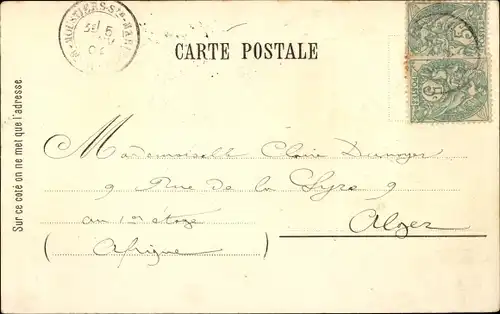 MOUSTIERS-Ste-MARIE
5
04
CARTE POSTALE
Sur ce côté on ne met que l'adresse
Mademoiselle Claire
9 Rue de la Lyre 9
au 1er étage
Alger
(Afrique)